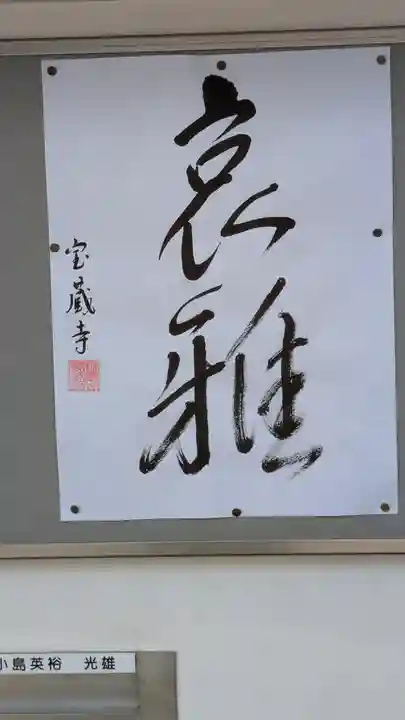 哀雅
宝蔵寺
小島英裕　光雄